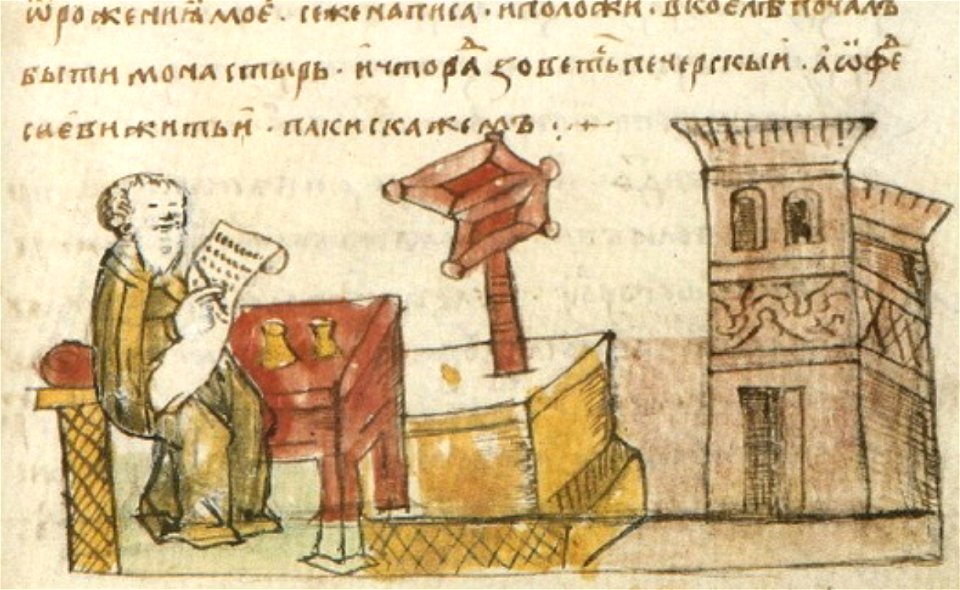 ѿрожениꙗ моє · сеженаписа · иположи · вкоелѣ почалъ
быти монастырь · ичтораⷣ зоветⷭьпечерскыи · аѡфеⷣ
сиєвижитьи · пакискажемъ